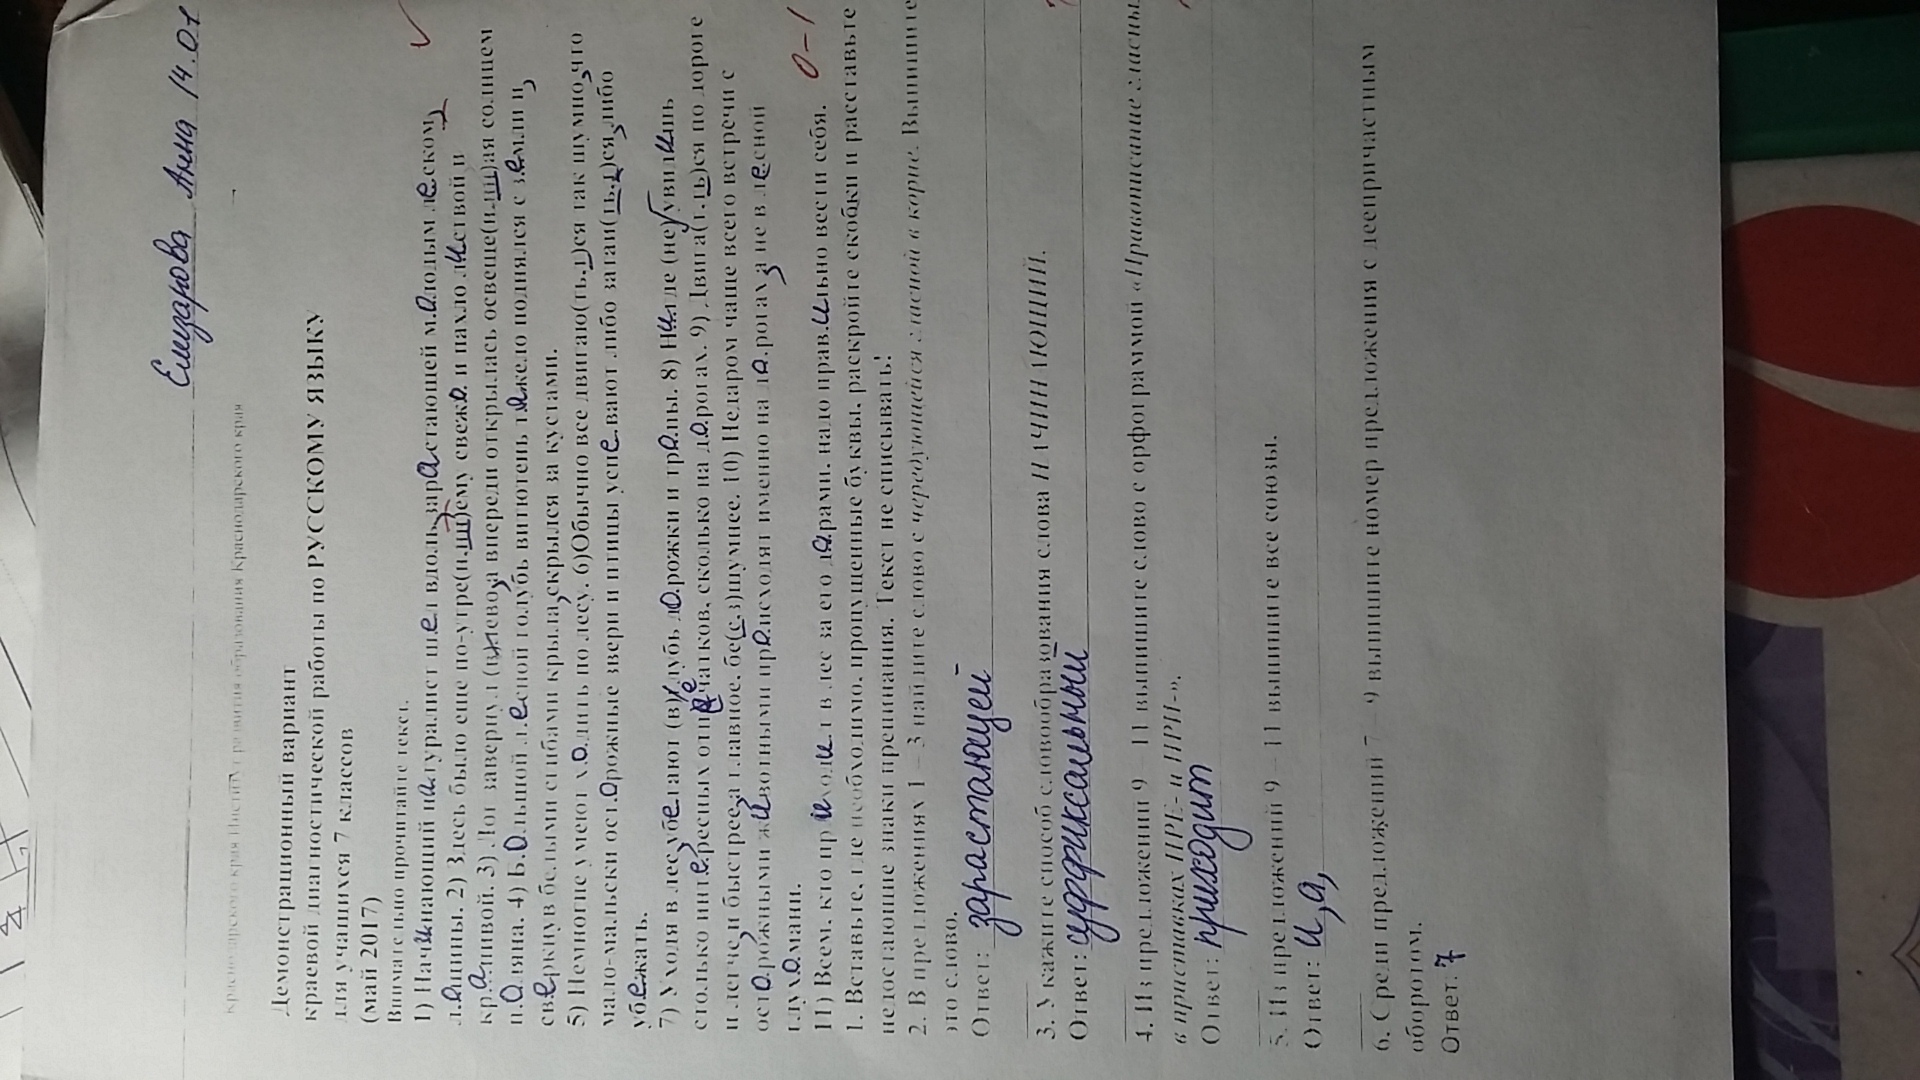 Елизарова Анна 14.01
Краснодарского края Институт развития образования Краснодарского края
Демонстрационный вариант
краевой диагностической работы по РУССКОМУ ЯЗЫКУ
для учащихся 7 классов
(май 2017)
Внимательно прочитайте текст.
1) Начинающий натуралист шел вдоль зарастающей молодым леском,
лощины. 2) Здесь было еще по-утре(н.нн)ему свежо и пахло листвой и
крапивой. 3) Лог завернул (в)лево,а впереди открылась освеще(н.нн)ая солнцем
поляна. 4) Большой лесной голубь витютень тяжело поднялся с земли и,
сверкнув белыми сгибами крыла,скрылся за кустами.
5) Немногие умеют ходить по лесу. 6)Обычно все двигаю(ть.т)ся так шумно,что
мало-мальски осторожные звери и птицы успевают либо затаи(ть.т)ся,либо
убежать.
7) Уходя в лес,убегают (в)глубь дорожки и тропы. 8) Нигде (не)увидишь
столько интересных отпечатков, сколько на дорогах. 9) Двига(т.ть)ся по дороге
и легче,и быстрее,а главное, бе(с.з)шумнее. 10) Недаром чаще всего встречи с
осторожными животными происходят именно на дорогах,а не в лесной
глухомани.
11) Всем, кто приходит в лес за его дарами, надо правильно вести себя. 0-1
1. Вставьте, где необходимо, пропущенные буквы, раскройте скобки и расставьте
недостающие знаки препинания. Текст не списывать!
2. В предложениях 1 – 3 найдите слово с чередующейся гласной в корне. Выпишите
это слово.
Ответ: зарастающей
3. Укажите способ словообразования слова НАЧИНАЮЩИЙ.
Ответ: суффиксальный
4. Из предложений 9 – 11 выпишите слово с орфограммой «Правописание гласных
в приставках ПРЕ- и ПРИ-».
Ответ: приходит
5. Из предложений 9 – 11 выпишите все союзы.
Ответ: и, а,
6. Среди предложений 7 – 9 выпишите номер предложения с деепричастным
оборотом.
Ответ. 7